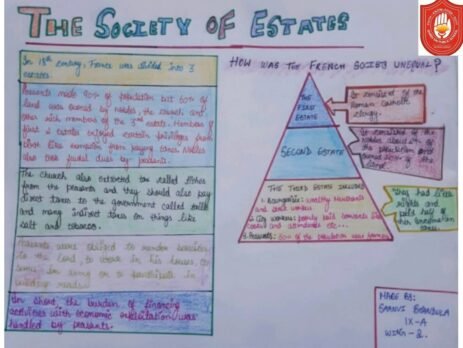 THE SOCIETY OF ESTATES
In 18th century, France was divided into 3
estates.
Peasants made 90% of population but 60% of
land was owned by Nobles, the church and
other rich members of the 3rd estate. Members of
first 2 estates enjoyed certain privileges from
birth like exemption from paying taxes. Nobles
also took feudal dues by peasants.
The church also extracted tax called tithes
from the peasants and they should also pay
direct taxes to the government called taille
and many indirect taxes on things like
salt and tobacco.
Peasants were obliged to render services
to the lord, to work in his house,
army or to participate in
building roads.
In short, the burden of financing
activities with economic was
handled by peasants.
HOW WAS THE FRENCH SOCIETY UNEQUAL?
THE
FIRST
ESTATE
It consisted of the
Roman Catholic
clergy.
SECOND ESTATE
It consisted of the
Nobles about
of the
THE THIRD ESTATE INCLUDED
1. Bourgeoisie: wealthy merchants
and
2. City workers: poorly paid
cooks and
3. Peasants: of the population was
They had little
rights and
paid half of
their
taxes.
MADE BY:
IX-A
WING-2